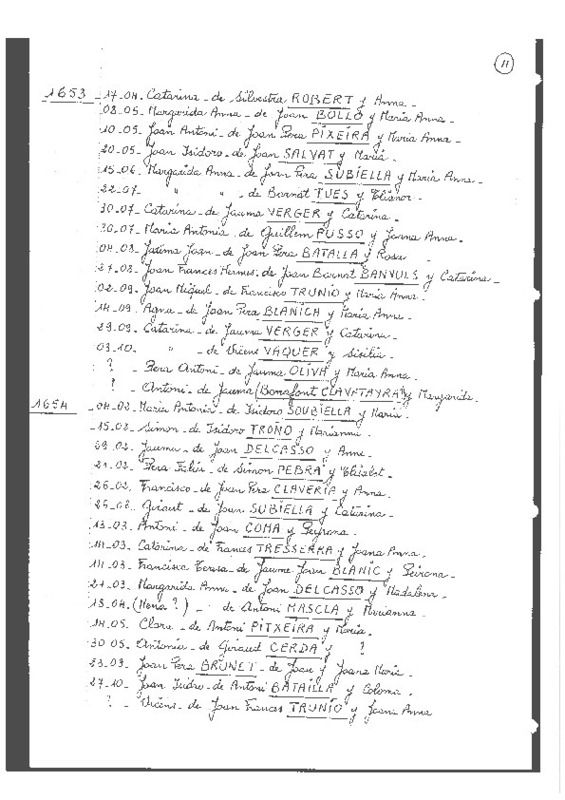 11
1653 -17-04. Catarina - de Silvestra ROBERT y Anna -
08-05. Margarida Anna - de Joan BOLLO y Maria Anna -
10-05. Joan Antoni - de Joan Pera PIXEIRA y Maria Anna -
20-05. Joan Isidoro - de Joan SALVAT y Maria.
15-06. Margarida Anna - de Joan Pera SUBIELLA y Maria Anna -
22-07. " " - de Barnat TUES y Elianor -
30-07 - Catarina - de Jauma VERGER y Catarina -
30-07. Maria Antonia - de Guillem PUSSO y Joana Anna -
04-08 - Joan - de Joan Pera BATALLA y Rosa -
27-08. Joan Frances Hermes - de Joan Barnat BANYULS y Catarina -
02-09. Joan Miquel - de Francisco TRUNIO y Maria Anna -
14-09. Agna - de Joan Pera BLANICH y Maria Anna -
29-09. Catarina - de Jauma VERGER y Catarina -
03-10. " - de Vicens VAQUER y Sisilia -
? - Pera Antoni - de Jauma OLIVA y Maria Anna -
? - Antoni - de Jauma (Bonafont CLAVATAYRA) y Margarida -
1654 -04-02 - Maria Antonia - de Isidoro SOUBIELLA y Maria -
-15-02 - Simon - de Isidoro TRONO y Marianna -
29-02. Jauma - de Joan DELCASSO y Anna -
21-02 - Pera - de Simon PEBRA y Elisabet -
26-02. Francisco - de Joan Pera CLAVERIA y Anna -
25-02. Giraut - de Joan SUBIELLA y Catarina -
13-03. Antoni - de Joan COMA y Peyrona -
14-03. Catarina - de Frances TRESSERRA y Joana Anna -
14-03. Francisca Teresa - de Jaume Joan BLANIC y Peirona -
21-03 - Margarida Anna - de Joan DELCASSO y Madalena -
13-04. (Nena ?) - - de Antoni MASCLA y Marianna -
14-05. Clara - de Antoni PITXEIRA y Maria -
30-05. Antonia - de Giraud CERDA y ?
23-09. Joan Pera BRUNET - de Joan y Joana Maria -
27-10. Joan Isidre - de Antoni BATAILLA y Coloma -
? - Vicens - de Joan Frances TRUNIO y Joana Anna